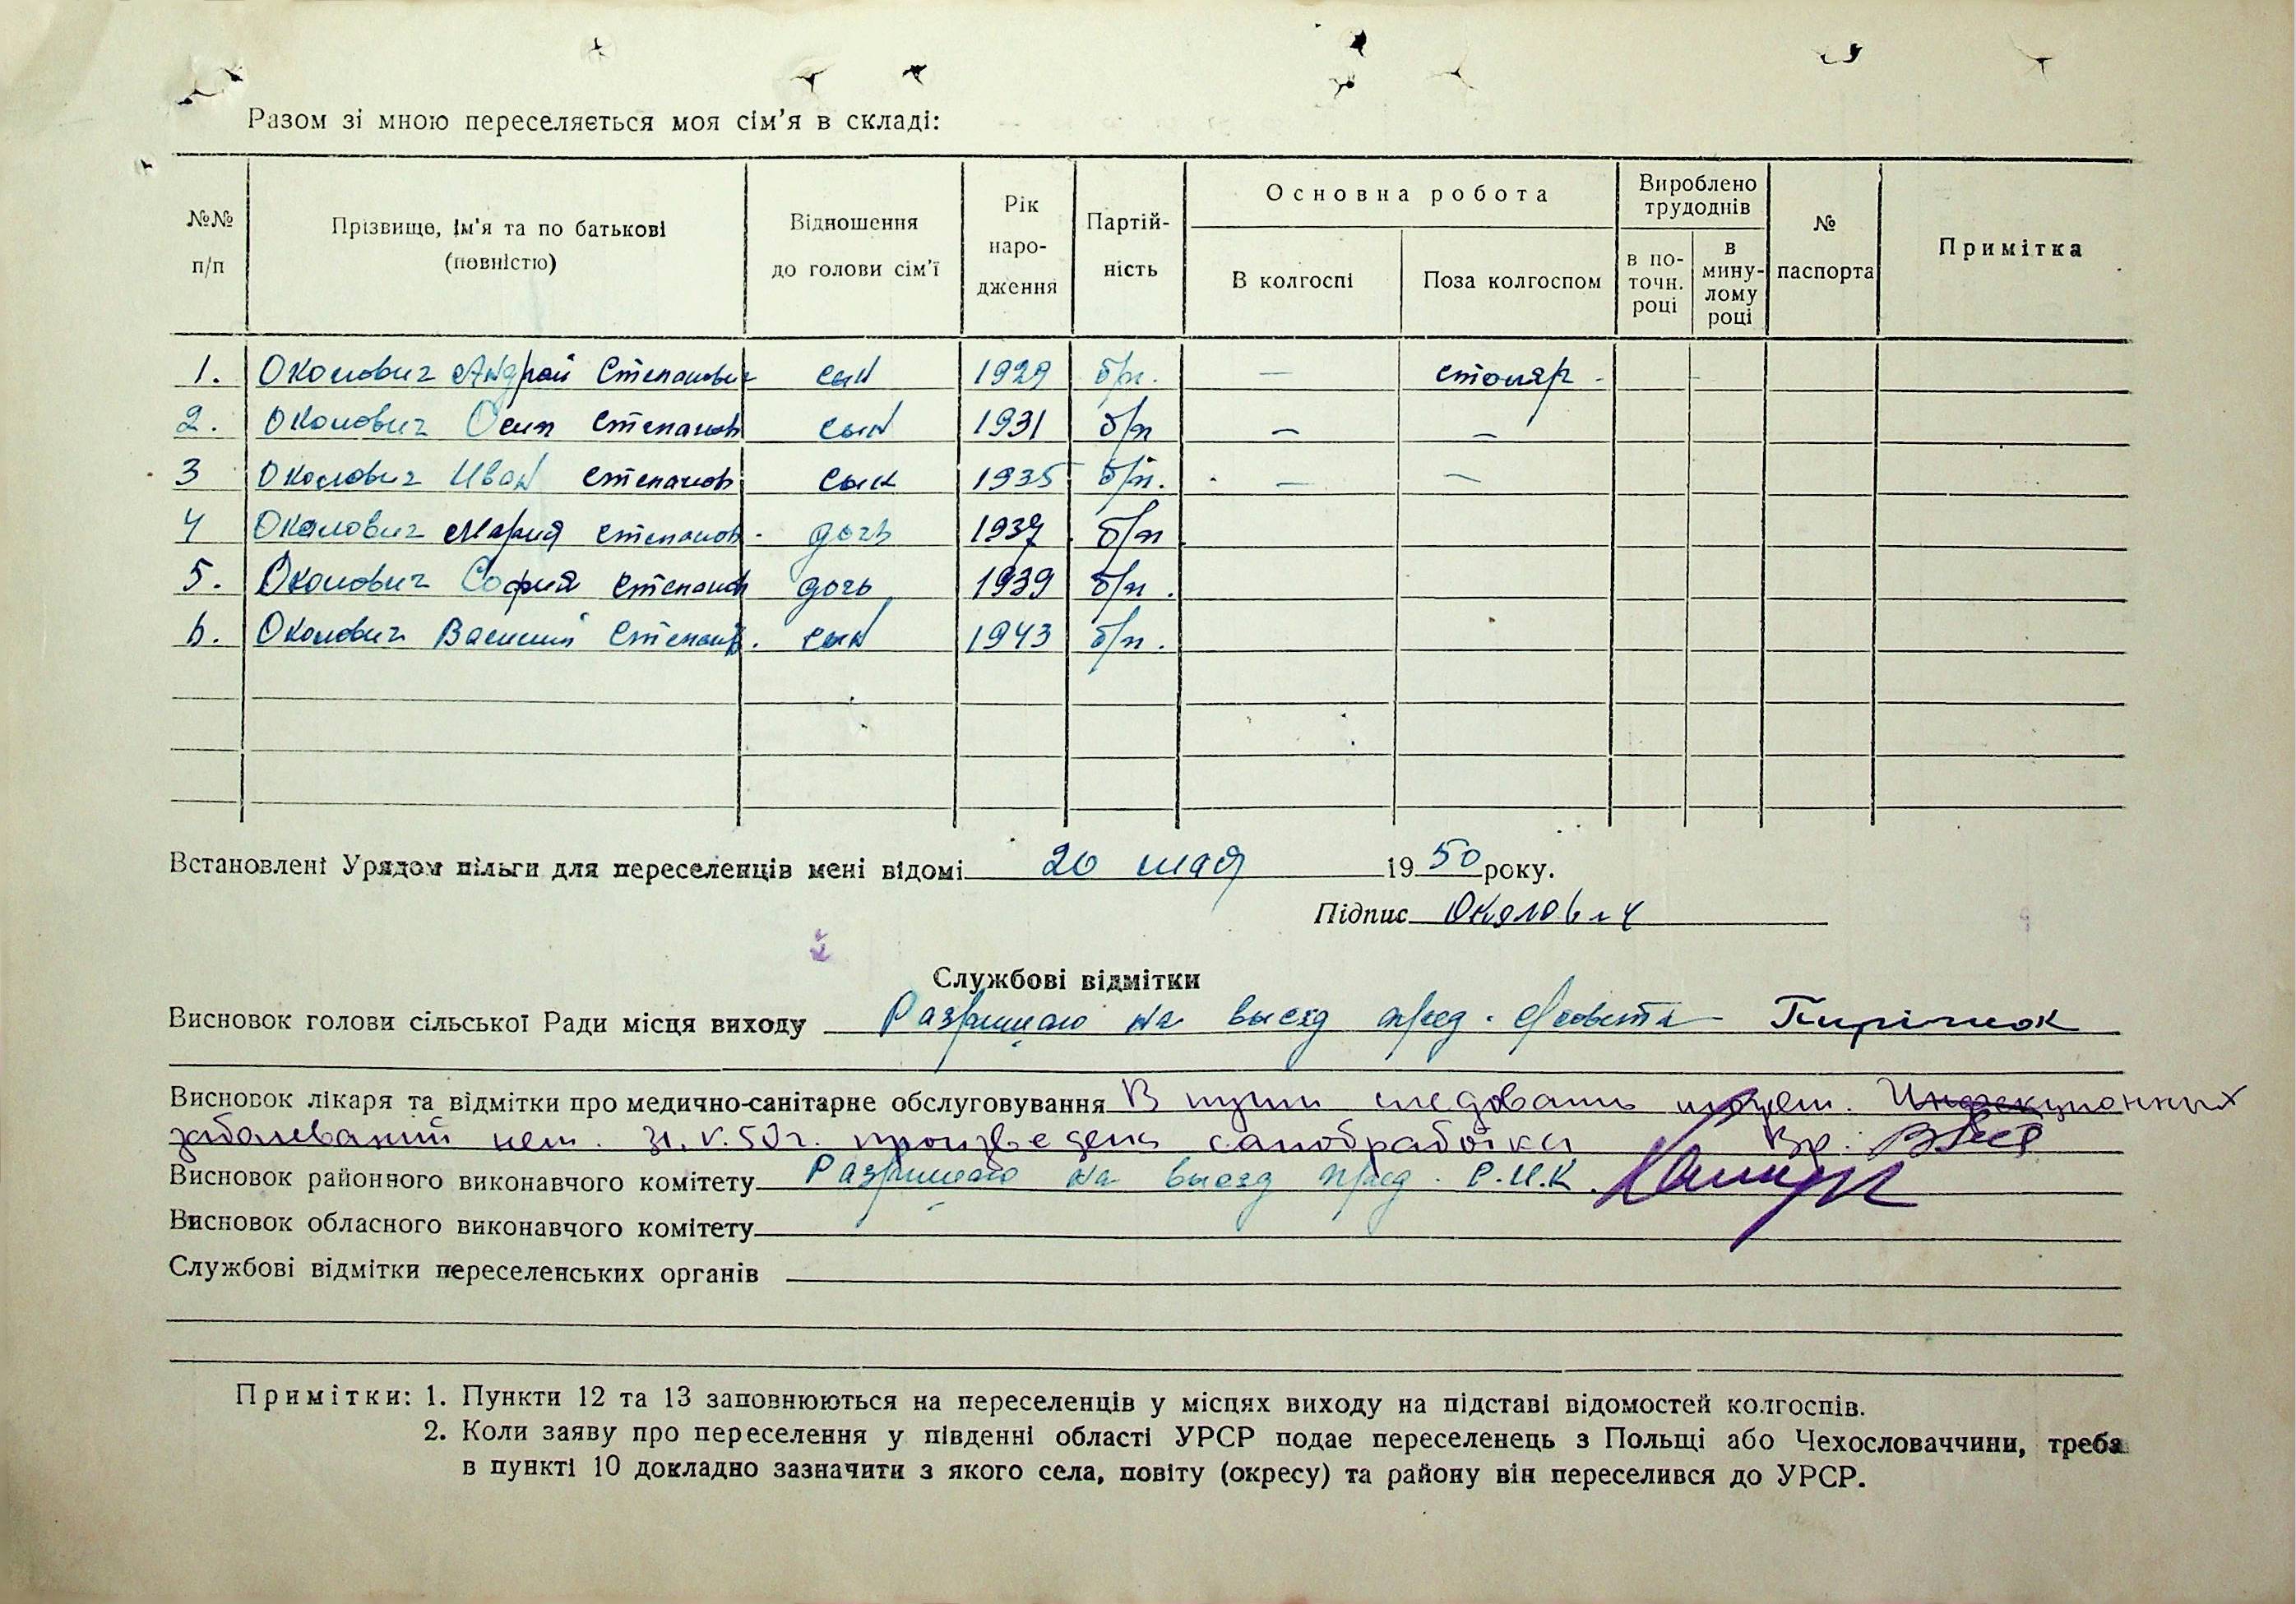 Разом зі мною переселяється моя сім'я в складі:
№№ п/п | Прізвище, ім'я та по батькові (повністю) | Відношення до голови сім'ї | Рік народження | Партійність | Основна робота | Вироблено трудоднів | № паспорта | Примітка
В колгоспі | Поза колгоспом | в поточн. році | в минулому році
1. Околович Андрей Степанович сын 1929 б/п. — столяр -
2. Околович Осип Степанов сын 1931 б/п — —
3 Околович Иван Степанов сын 1935 б/п. — —
4 Околович Мария Степанов. дочь 1937 б/п
5. Околович София Степанов дочь 1939 б/п.
6. Околович Василий Степанов. сын 1943 б/п.
Встановлені Урядом пільги для переселенців мені відомі 20 мая 1950 року.
Підпис Околович
Службові відмітки
Висновок голови сільської Ради місця виходу Разрешаю на выезд пред. с/совета
Висновок лікаря та відмітки про медично-санітарне обслуговування В пути следовать может. Инфекционных
заболеваний нет. 31.V.50г. произведена санобработка Вр.
Висновок районного виконавчого комітету Разрешаю на выезд пред. Р.И.К.
Висновок обласного виконавчого комітету
Службові відмітки переселенських органів
Примітки: 1. Пункти 12 та 13 заповнюються на переселенців у місцях виходу на підставі відомостей колгоспів.
2. Коли заяву про переселення у південні області УРСР подає переселенець з Польщі або Чехословаччини, треба
в пункті 10 докладно зазначити з якого села, повіту (округу) та району він переселився до УРСР.